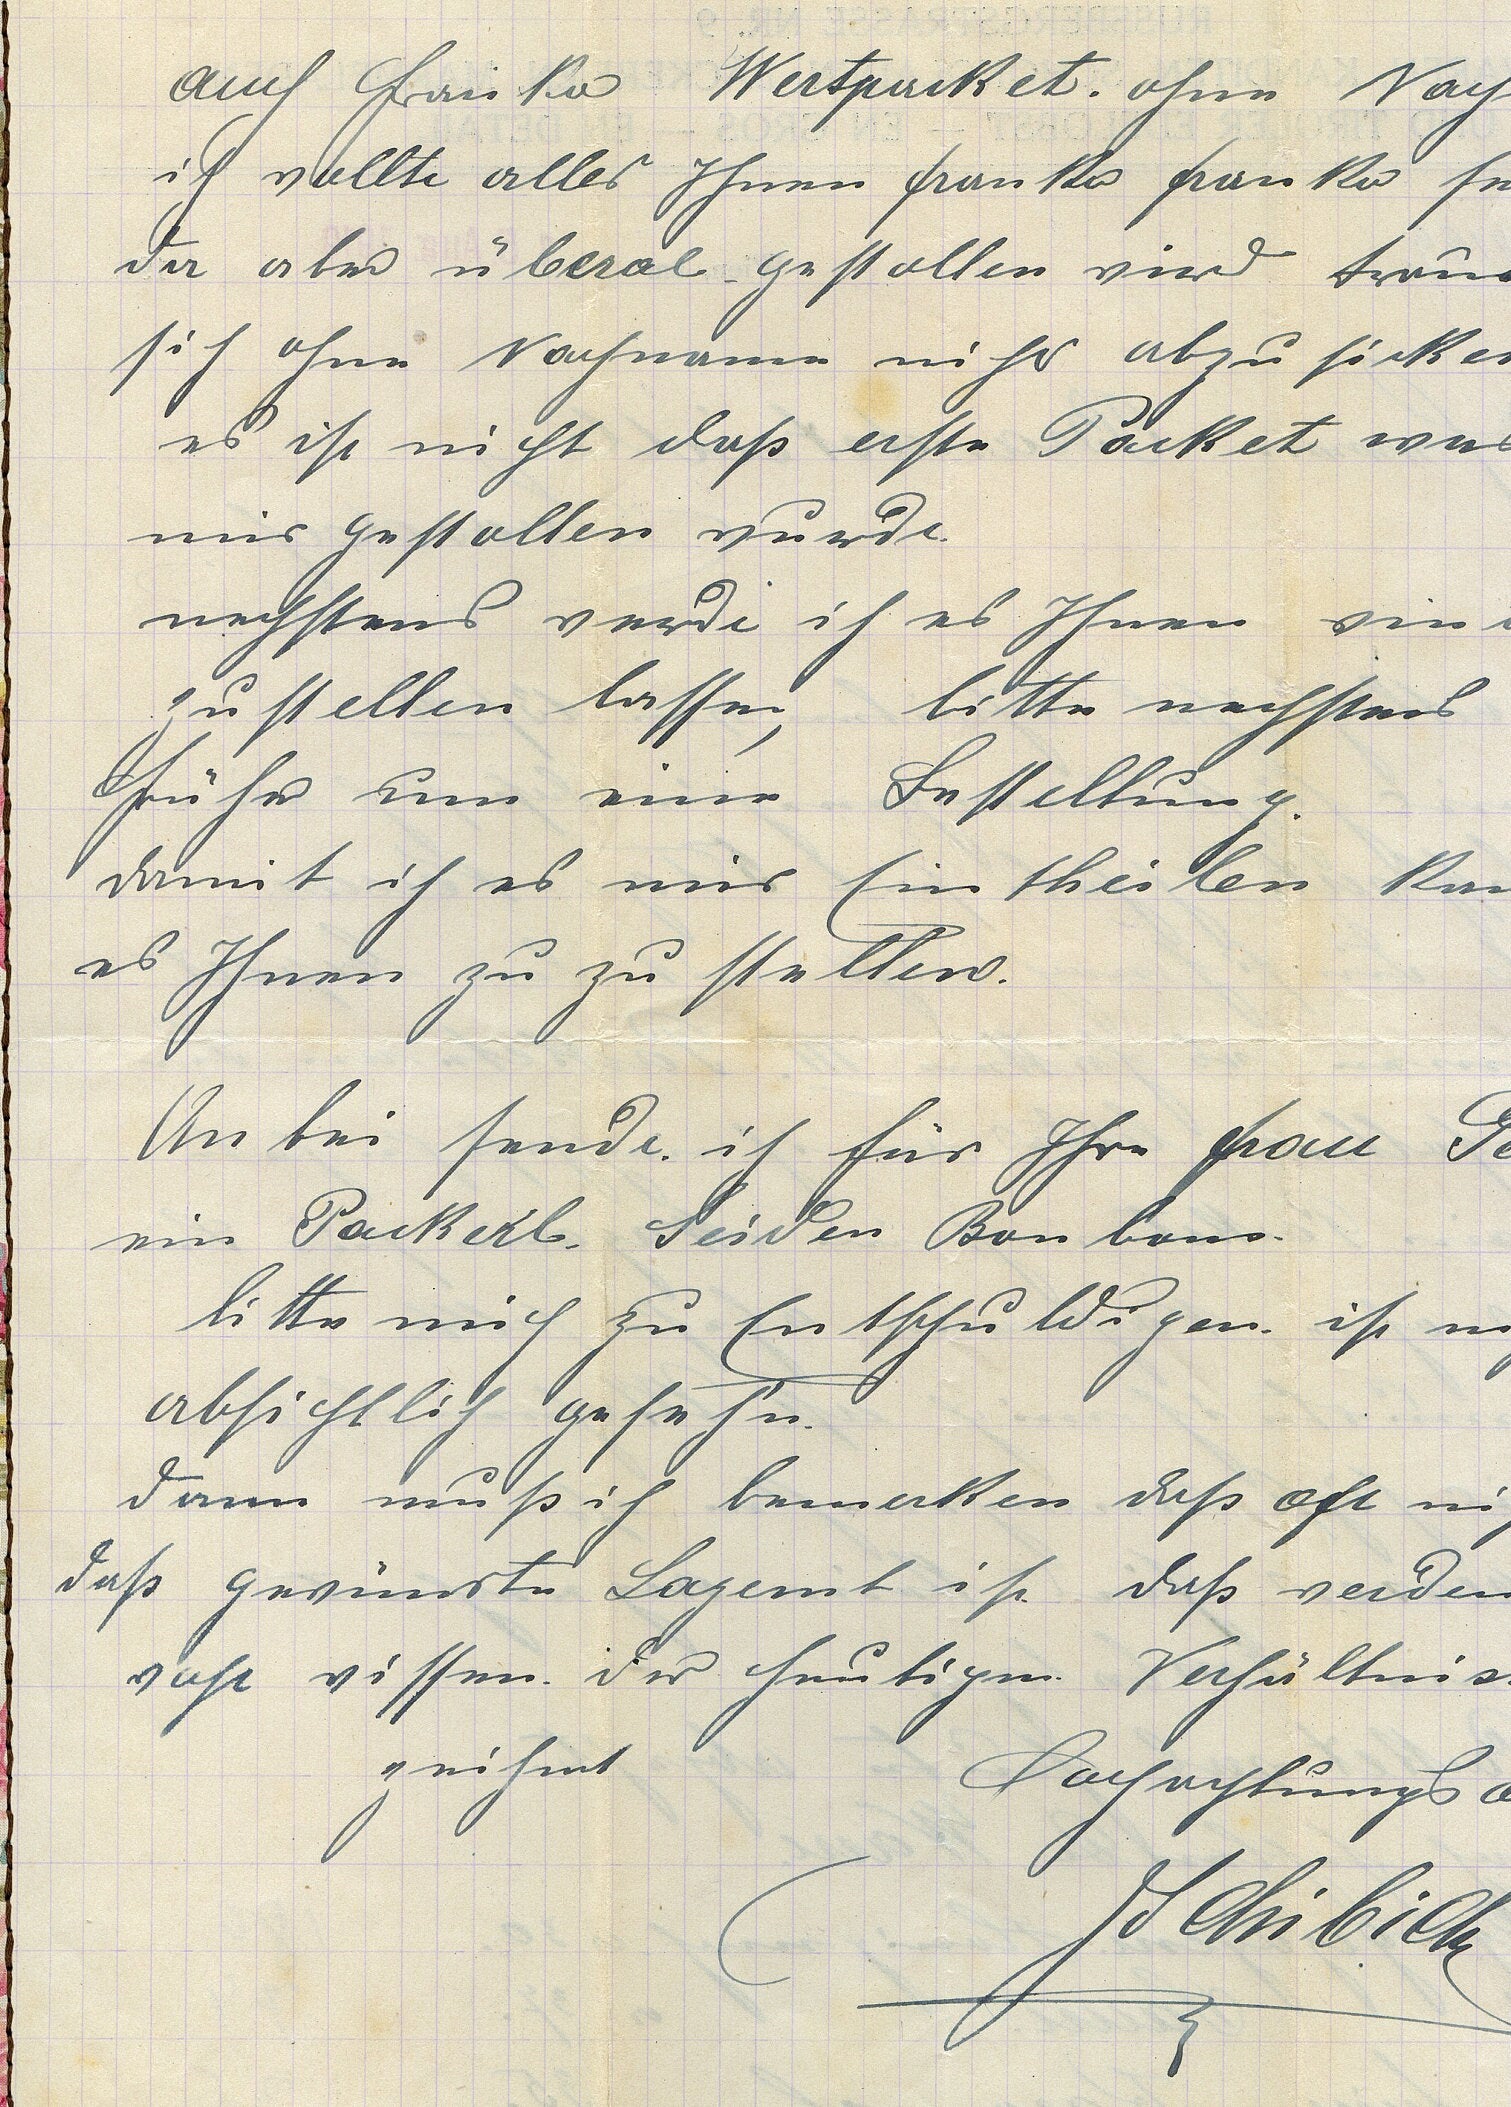 auch franko Wertpacket. ohne Nach
ich wollte alles Ihnen franko franko se
da aber überal gestollen wird trau
sich ohne Nachname nicht abzusicken
es ist nicht daß erste Packet was
mir gestollen wurde.
nechstens werde ich es Ihnen wie
zustellen lassen, bitte nechstens
früher um eine Bestellung.
damit ich es mir Eintheilen kan
es Ihnen zu zu stellen.
An bei sende. ich für Ihre frau Ge
ein Packerl. Seiden Bonbons.
bitte mich zu Entschuldigen. ist ni
absichtlich geschehn.
dann muß ich bemerken daß oft nich
daß gewünste Lagernt ist daß werden
wohl wissen. der heutigen. Verhältniss
zeichnet Hochachtungs